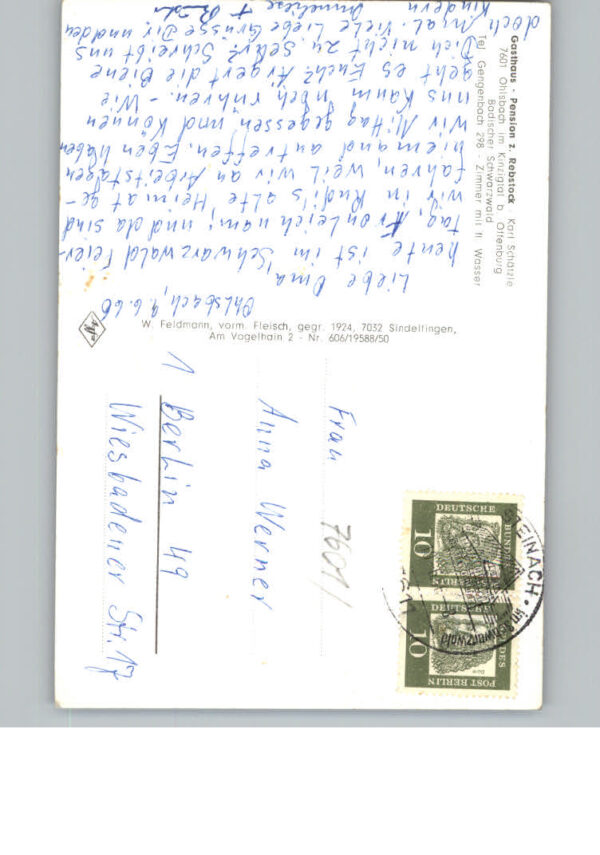 Gasthaus - Pension z. Rebstock Karl Schätzle
7601 Ohlsbach im Kinzigtal b. Offenburg
Badischer Schwarzwald
Tel. Gengenbach 298 - Zimmer mit fl. Wasser
Ohlsbach, 9.6.66
Liebe Oma,
heute ist im Schwarzwald Feier-
tag, Fronleichnam, und da sind
wir in Rudi's alte Heimat ge-
fahren, weil wir an Arbeitstagen
niemand antreffen. Eben haben
wir Mittag gegessen und können
uns kaum noch rühren. - Wie
geht es Euch? Ärgert die Biene
Dich nicht zu sehr? Schreibt uns
doch mal. Viele liebe Grüsse Dir und den
Kindern Anneliese + Rudi
W. Feldmann, vorm. Fleisch, gegr. 1924, 7032 Sindelfingen,
Am Vogelhain 2 - Nr. 606/19588/50
Agfa
Frau
Anna Werner
1 Berlin 49
Wiesbadener Str. 17
7601/
DEUTSCHE BUNDESPOST BERLIN
10
DEUTSCHE BUNDESPOST BERLIN
10
STEINACH
im Schwarzwald